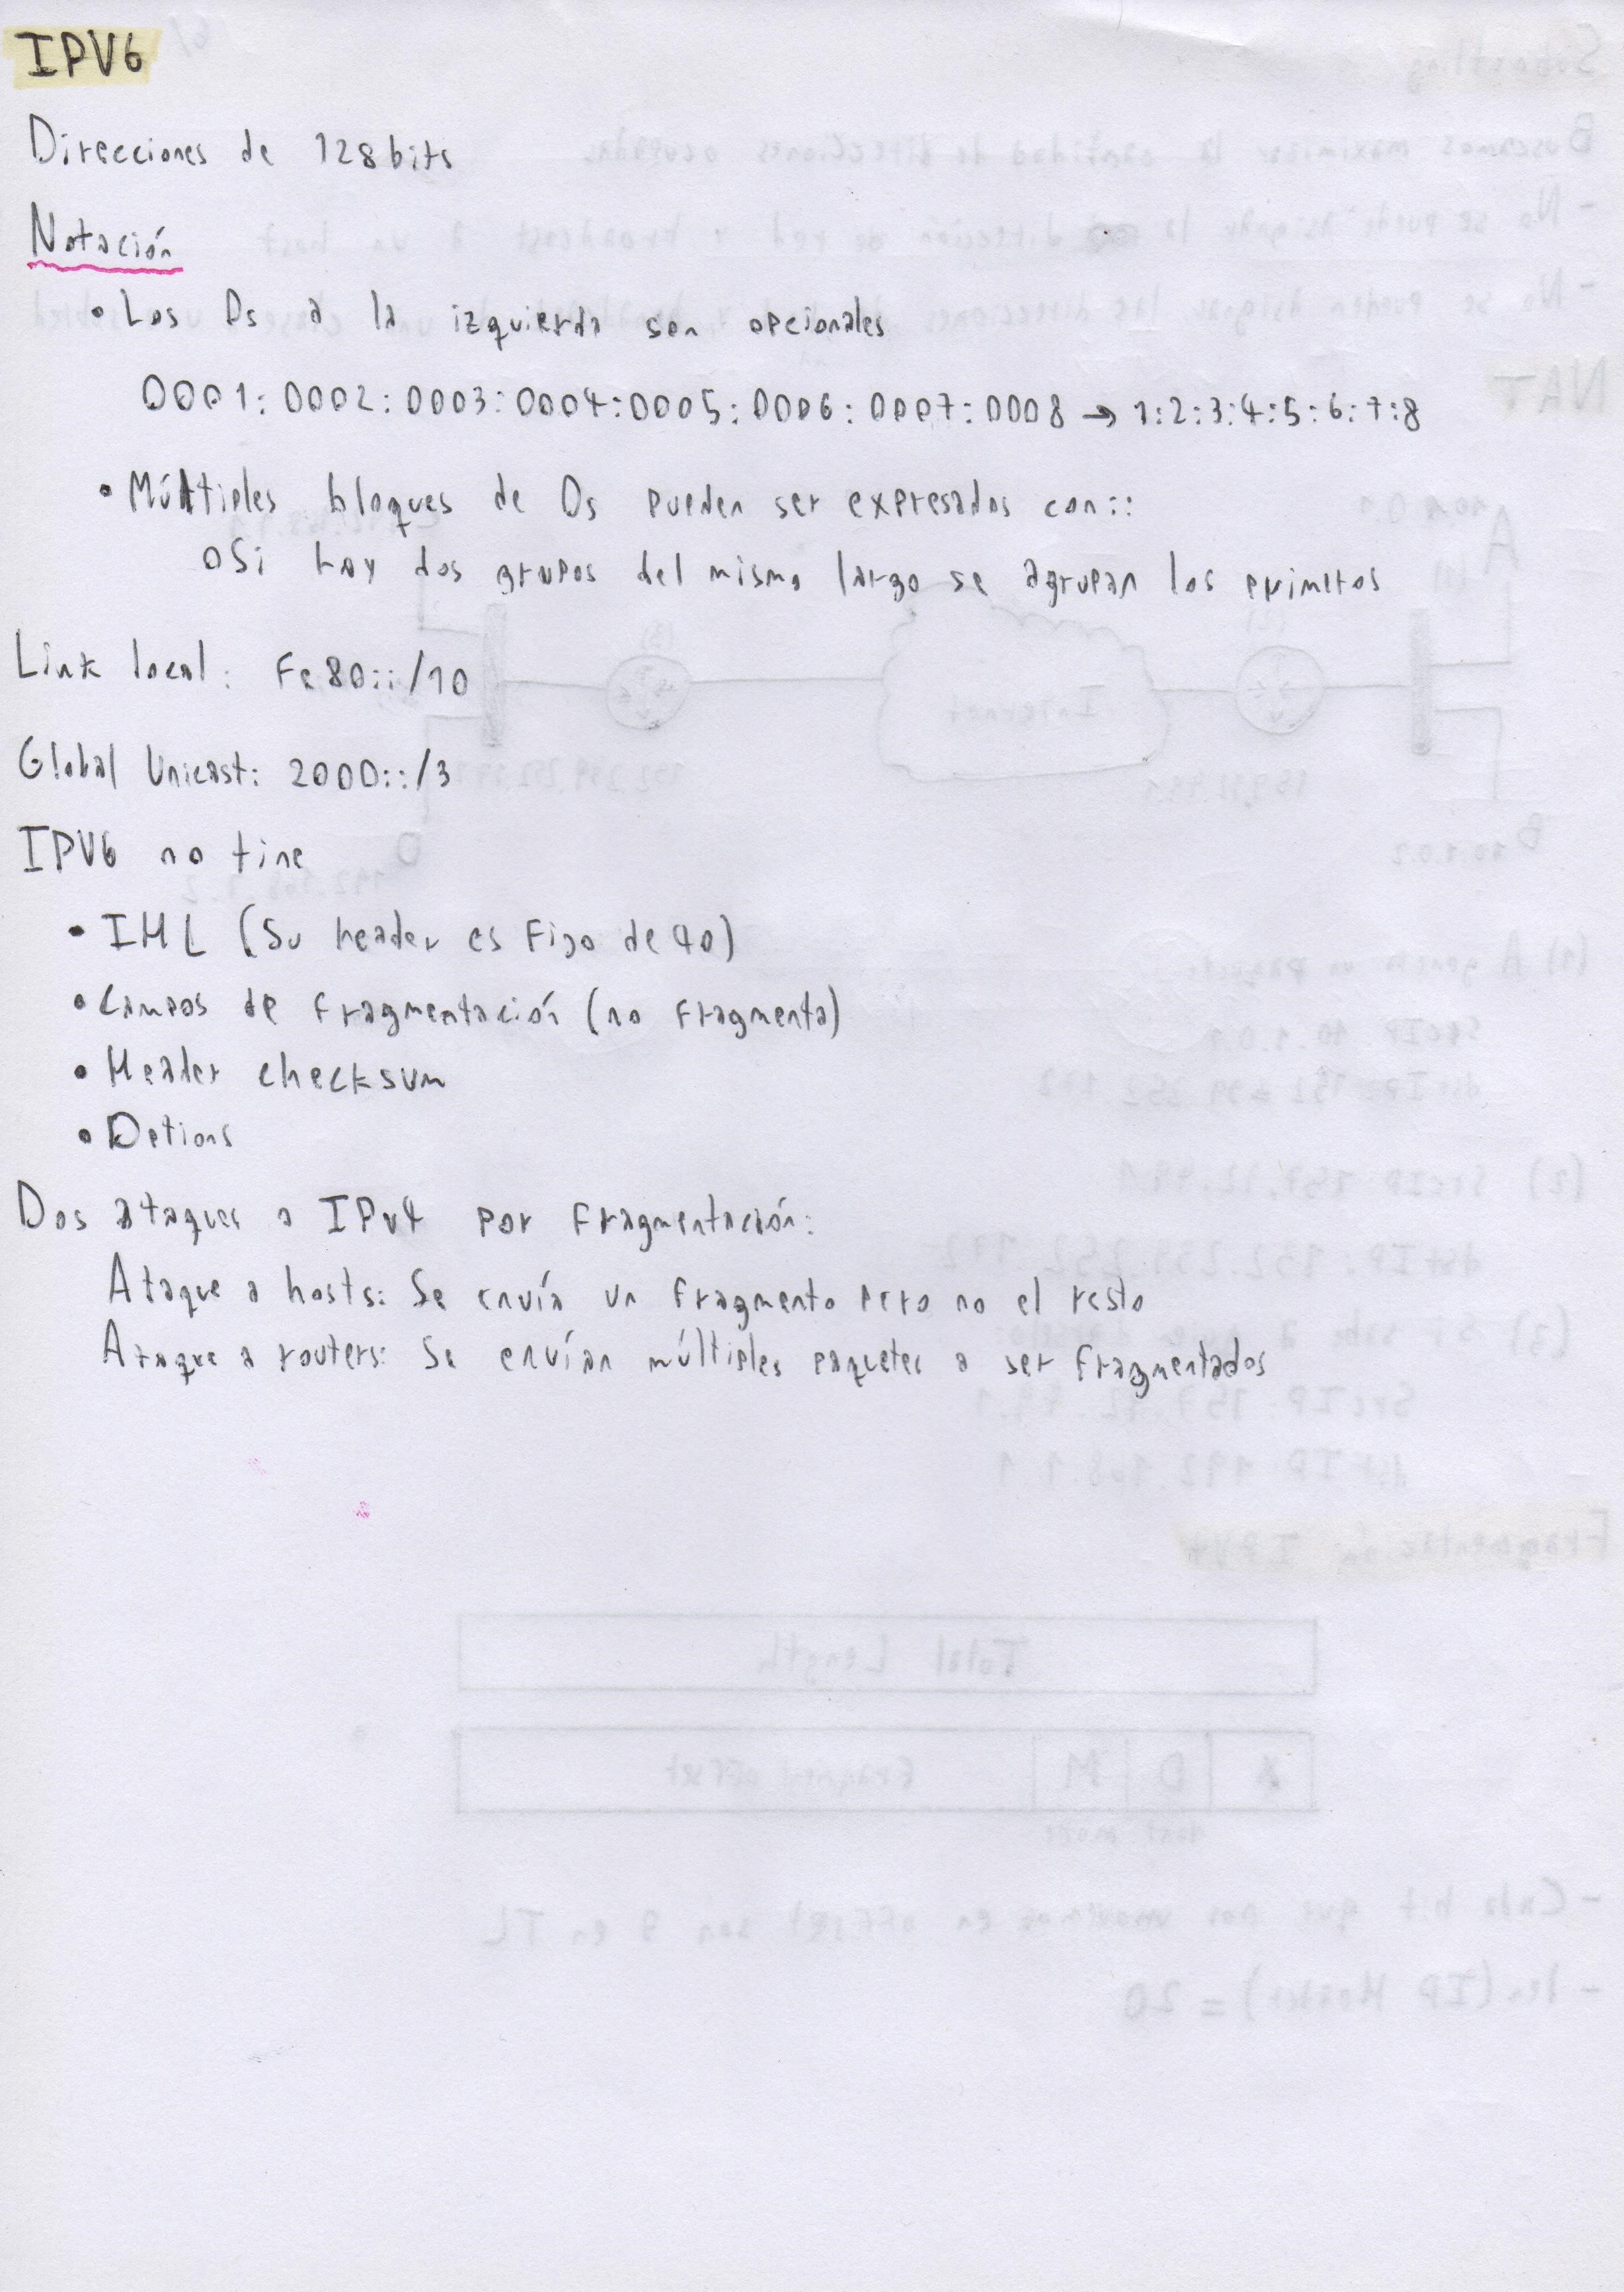 IPV6
Direcciones de 128bits
Notación
• Los 0s a la izquierda son opcionales
0001:0002:0003:0004:0005:0006:0007:0008 → 1:2:3:4:5:6:7:8
• Múltiples bloques de 0s pueden ser expresados con::
o Si hay dos grupos del mismo largo se agrupan los primeros
Link local: Fe80::/10
Global Unicast: 2000::/3
IPV6 no tine
• IHL (Su header es Fijo de 40)
• Campos de fragmentación (no fragmenta)
• Header checksum
• Options
Dos ataques a IPv4 por fragmentación:
Ataque a hosts: Se envía un fragmento pero no el resto
Ataque a routers: Se envían múltiples paquetes a ser fragmentados